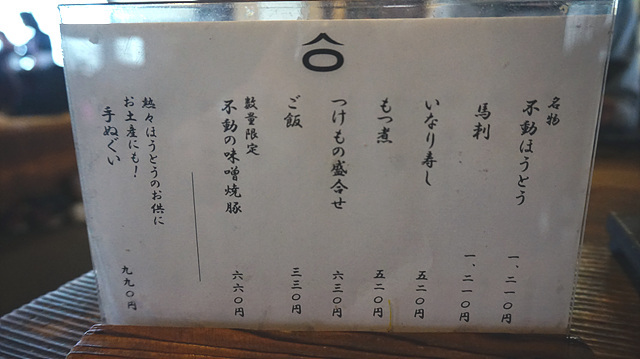 名物
不動ほうとう
一、二一〇円
馬刺
一、二一〇円
いなり寿し
五二〇円
もつ煮
五二〇円
つけもの盛合せ
六三〇円
ご飯
三三〇円
数量限定
不動の味噌焼豚
六六〇円
熱々ほうとうのお供に
お土産にも!
手ぬぐい
九九〇円